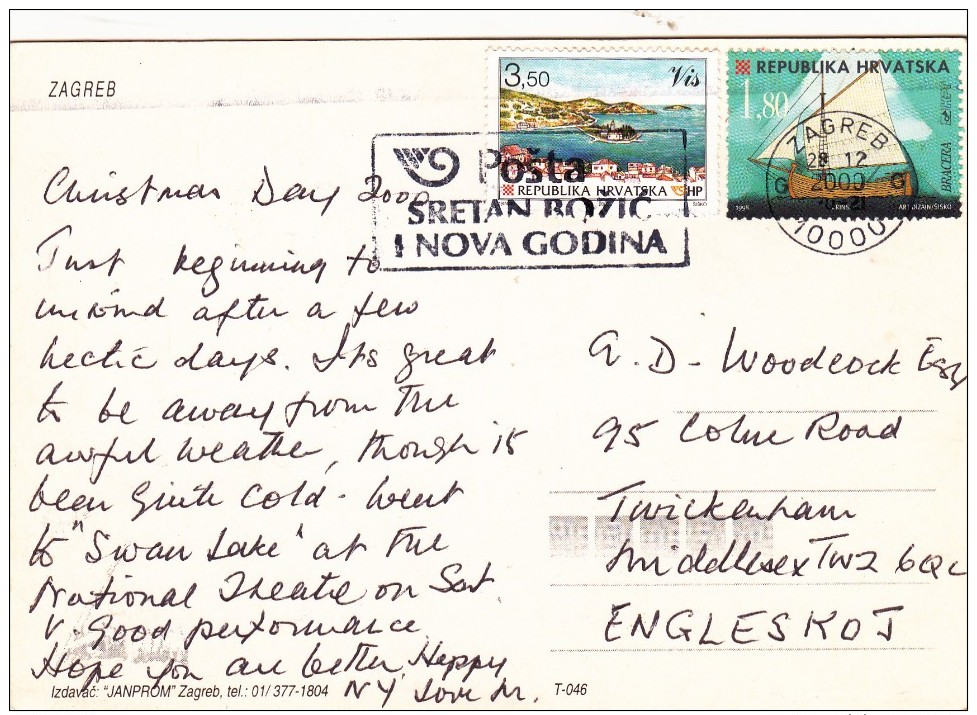 ZAGREB
3,50
Vis
REPUBLIKA HRVATSKA
HP
REPUBLIKA HRVATSKA
1,80
BRACERA
1998
ZAGREB
28 12
2000
10000
Pošta
SRETAN BOŽIĆ
I NOVA GODINA
Christmas Day 2000
Just beginning to
unwind after a few
hectic days. Its great
to be away from the
awful weather, though its
been quite cold - went
to "Swan Lake" at the
National Theatre on Sat
V. Good performance
Hope you are better. Happy
NY. Love M.
A. D. Woodcock Esq
95 Colne Road
Twickenham
Middlesex TW2 6QL
ENGLESKOJ
Izdavač: "JANPROM" Zagreb, tel.: 01/ 377-1804
T-046